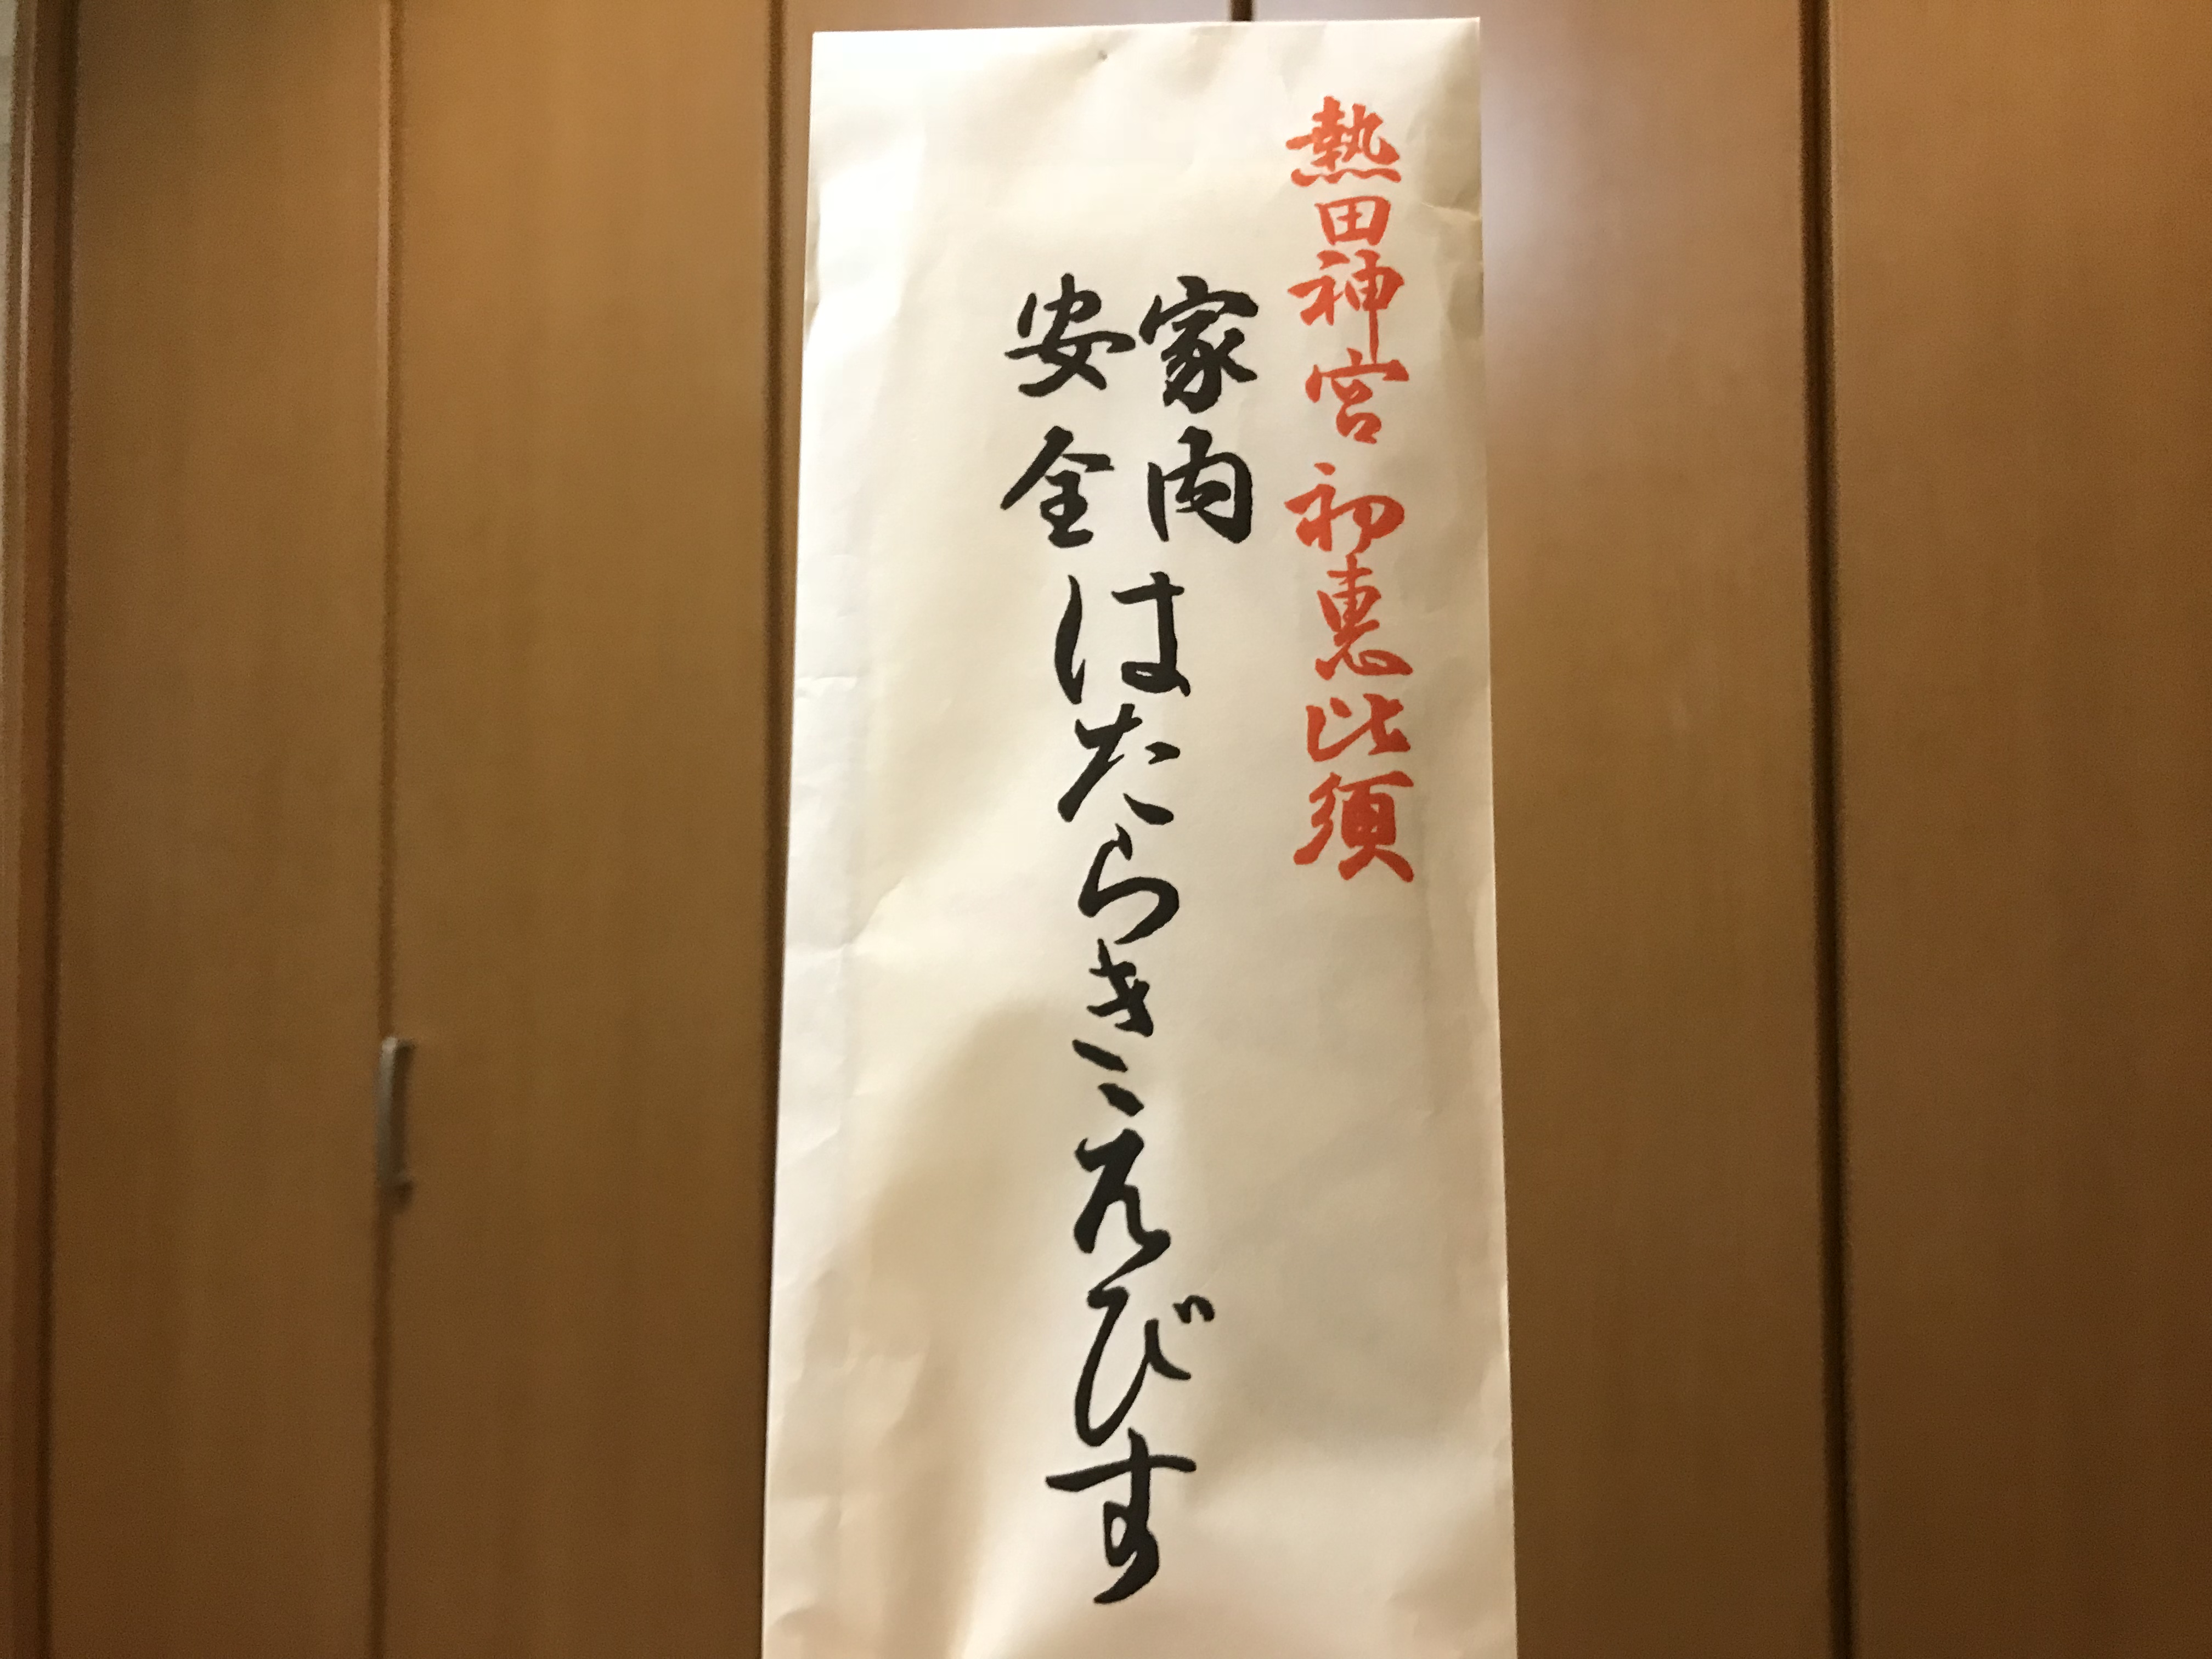 熱田神宮 初恵比須
家内
安全
はたらきえびす